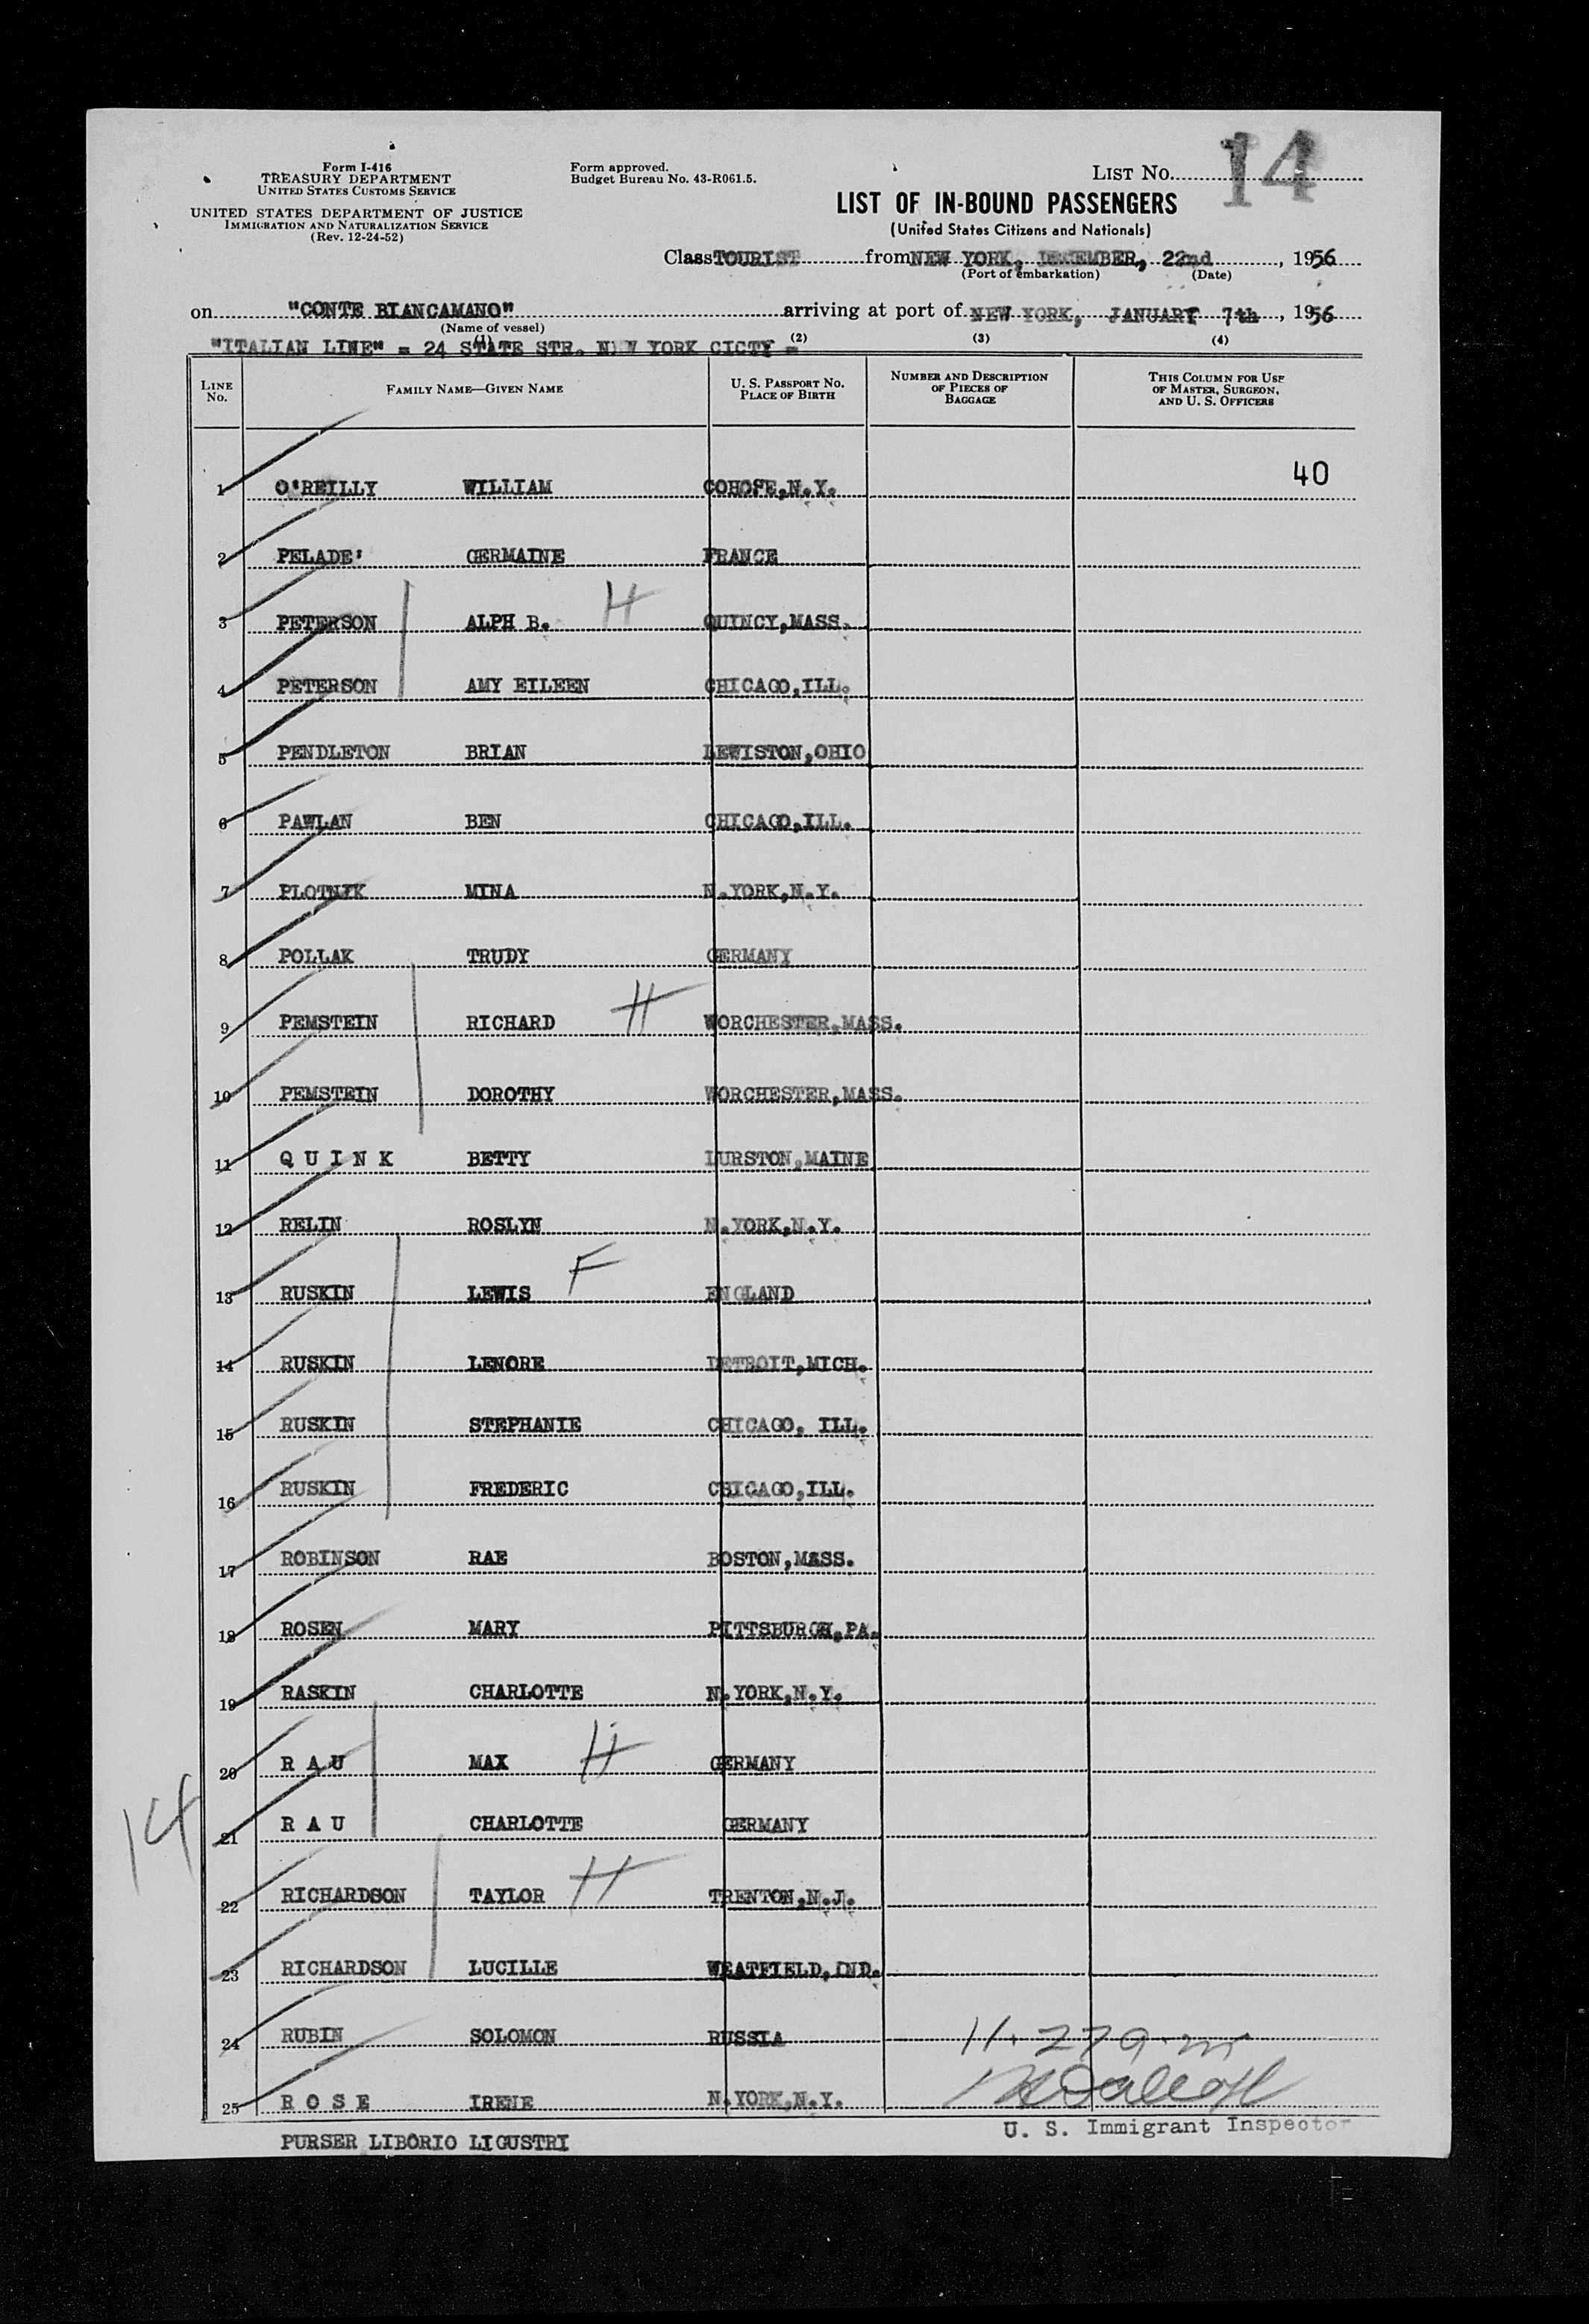 Form I-416
TREASURY DEPARTMENT
UNITED STATES CUSTOMS SERVICE
UNITED STATES DEPARTMENT OF JUSTICE
IMMIGRATION AND NATURALIZATION SERVICE
(Rev. 12-24-52)
Form approved.
Budget Bureau No. 43-R061.5.
LIST No. 14
LIST OF IN-BOUND PASSENGERS
(United States Citizens and Nationals)
Class TOURIST from NEW YORK, DECEMBER, 22nd, 1956
(Port of embarkation) (Date)
on "CONTE BIANCAMANO" arriving at port of NEW YORK, JANUARY 7th, 1956
(Name of vessel)
(1) (2) (3) (4)
"ITALIAN LINE" = 24 STATE STR. NEW YORK CICTY =
LINE No. FAMILY NAME—GIVEN NAME U. S. PASSPORT No. PLACE OF BIRTH NUMBER AND DESCRIPTION OF PIECES OF BAGGAGE THIS COLUMN FOR USE OF MASTER, SURGEON, AND U. S. OFFICERS
40
1 O'REILLY WILLIAM COHOFE,N.Y.
2 PELADE' GERMAINE FRANCE
3 PETERSON ALPH B. H QUINCY,MASS.
4 PETERSON AMY EILEEN CHICAGO,ILL.
5 PENDLETON BRIAN LEWISTON,OHIO
6 PAWLAN BEN CHICAGO,ILL.
7 PLOTNIK MINA N.YORK,N.Y.
8 POLLAK TRUDY GERMANY
9 PEMSTEIN RICHARD H WORCHESTER,MASS.
10 PEMSTEIN DOROTHY WORCHESTER,MASS.
11 Q U I N K BETTY LURSTON,MAINE
12 RELIN ROSLYN N.YORK,N.Y.
13 RUSKIN LEWIS F ENGLAND
14 RUSKIN LENORE DETROIT,MICH.
15 RUSKIN STEPHANIE CHICAGO, ILL.
16 RUSKIN FREDERIC CHICAGO,ILL.
17 ROBINSON RAE BOSTON,MASS.
18 ROSEN MARY PITTSBURGH,PA.
19 RASKIN CHARLOTTE N.YORK,N.Y.
20 R A U MAX H GERMANY
21 R A U CHARLOTTE GERMANY
14
22 RICHARDSON TAYLOR H TRENTON,N.J.
23 RICHARDSON LUCILLE WEATFIELD,IND.
24 RUBIN SOLOMON RUSSIA
11.27 a.m
25 R O S E IRENE N.YORK,N.Y.
U. S. Immigrant Inspector
PURSER LIBORIO LIGUSTRI